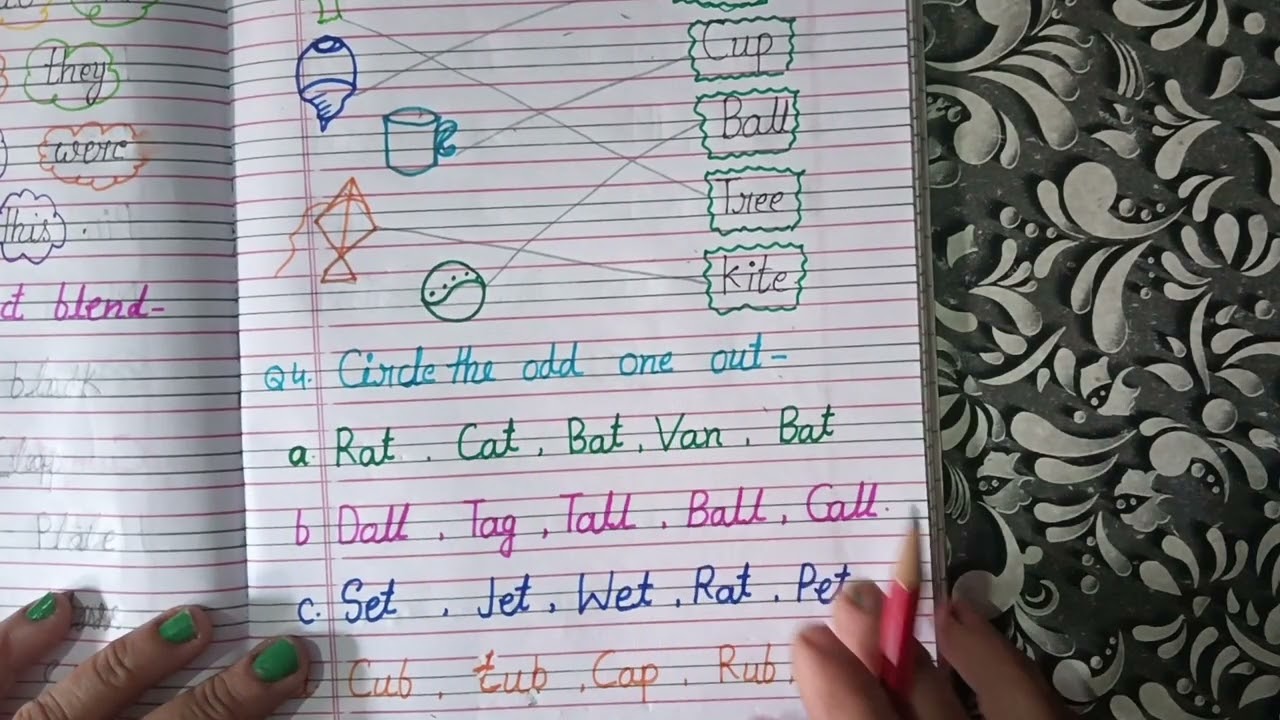 they
were
this
ct blend-
black
Plate
Cup
Ball
Tree
kite
Q4. Circle the odd one out-
a. Rat , Cat , Bat , Van , Bat
b Dall , Tag , Tall , Ball , Call.
c. Set , Jet , Wet , Rat , Pet
Cub , tub , Cap , Rub ,